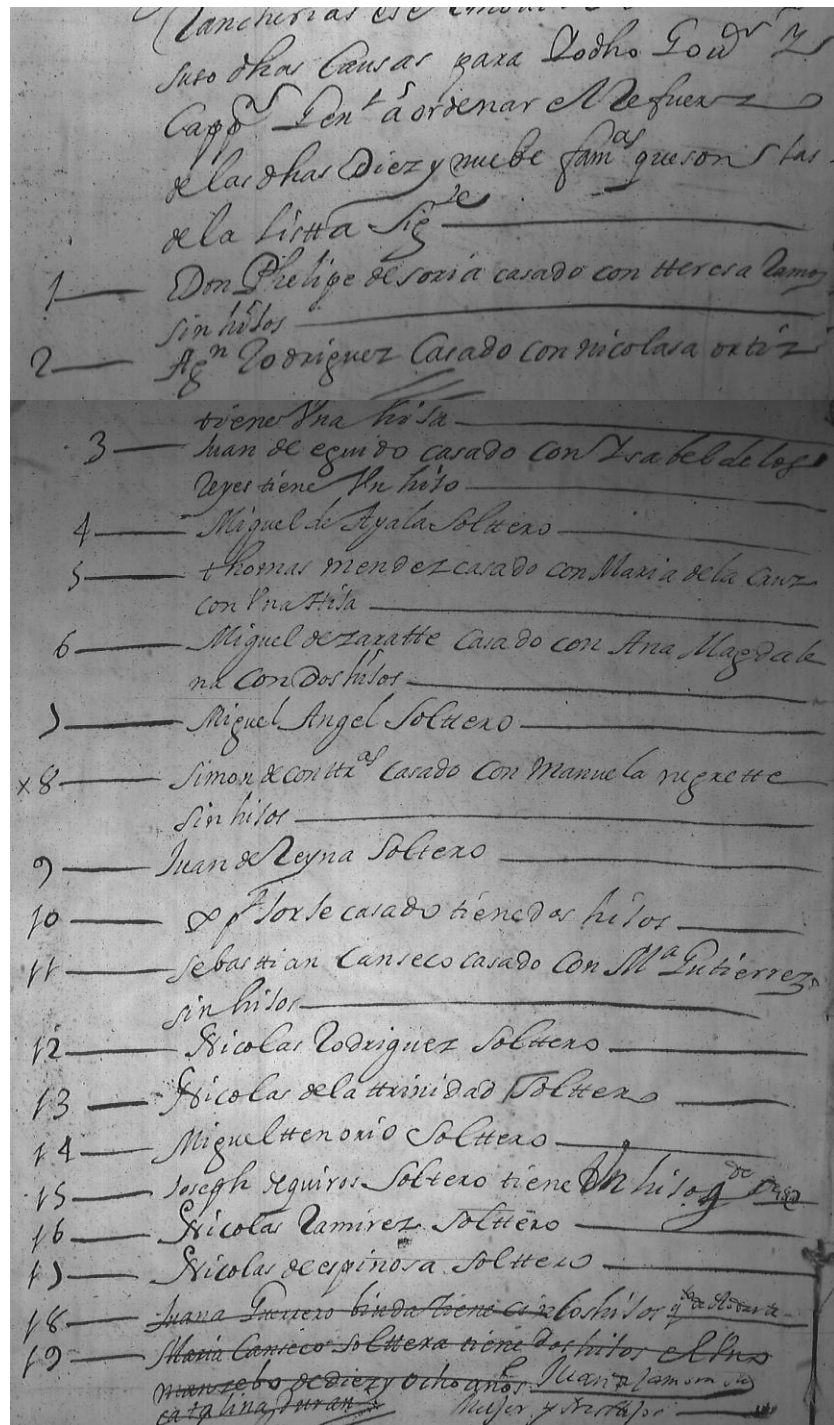 Rancherias
suso dhas Causas para Podho Govr Y
Cappn Genl â ordenar el Refuerzo
de las dhas Diez y nuebe famas que son las
de la listta Sigte
1 Don Phelipe de soria casado con tteresa Ramos
sin hisos
2 Agn Rodriguez Casado con nicolasa ortiz
tiene Vna hisa
3 Juan de eguido casado con Ysabel de los
Reyes tiene Vn hiso
4 Miguel de Ayala Solttero
5 thomas mendez casado con Maria de la Cruz
con Vna Hisa
6 Miguel de zaratte Casado con Ana Magdale
na con Dos hisos
7 Miguel Angel Solttero
x 8 Simon de conttras casado con Manuela negrette
sin hisos
9 Juan de Reyna Soltero
10 Jorse casado tiene dos hisos
11 sebasttian Canseco casado con Ma Gutierrez
sin hisos
12 Nicolas Rodriguez Solttero
13 Nicolas de la ttrinidad Solttero
14 Miguel ttenorio Solttero
15 Joseph de quiros Soltero tiene Un hiso
16 Nicolas Ramirez Solttero
17 Nicolas de espinosa Solttero
18 Juana Guerrero biuda tiene hisos
19 Maria Canseco Solttera tiene Dos hisos el Vno
manzebo de diez y ocho años Juan
catalina duran Mujer y